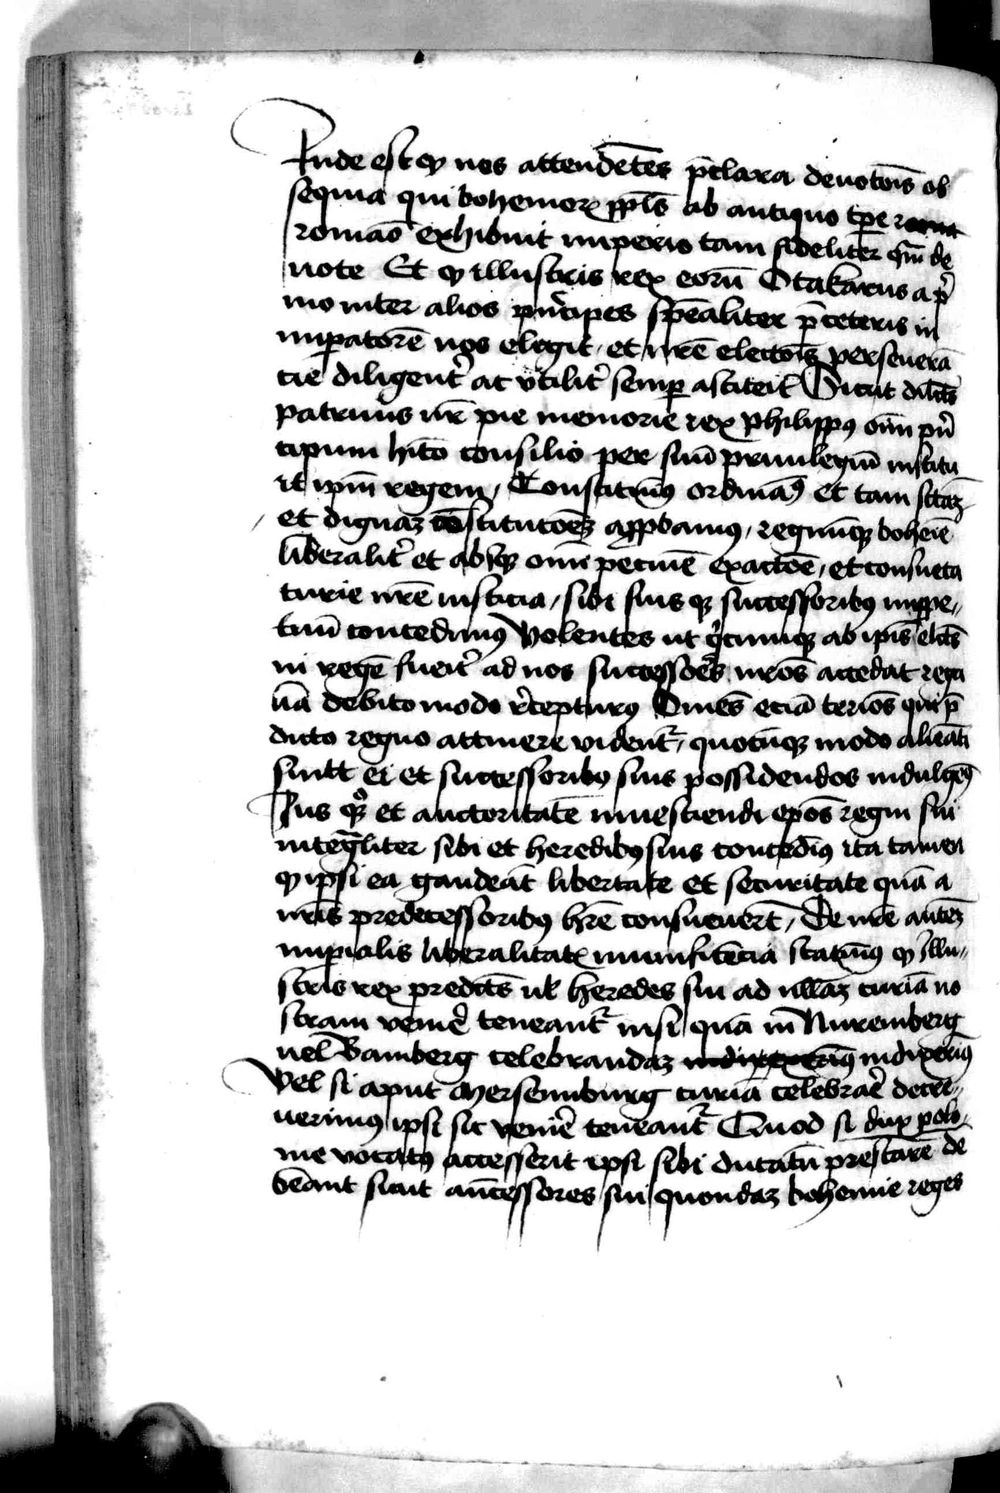 Inde est qꝫ nos attendētes p̄clara deuotōis ob
sequia qui bohemoꝝ ppl̄s ab antiquo tꝑe
romāo exhibuit imperio tam fideliter qm̄ de
uote Et qꝫ illustris rex eorū Otakarus a p̄
mo inter alios pn̄cipes spēaliter p̄ ceteris in
imꝑatorē nos elegit et nr̄e electōis perseuerā
cie diligent̓ ac vtilit̓ semꝑ astiterit Sicut dil̄cts
patruus nr̄ pie memorie rex philippꝰ oīm pn̄
cipum hīto consilio per suū priuilegiū institu
it ip̄m regem Constituimꝰ ordināꝰ et tam sctāꝫ
et dignaꝫ constitutōeꝫ approbamꝰ regnūqꝫ boheīe
liberalit̓ et absqꝫ omī pecunie exactōe et consueta
curie nr̄e iusticia sibi suis qꝫ successoribꝰ imppe
tuū concedimꝰ Volentes ut q̓cumqꝫ ab ipīs elcts
in regē fuerit ad nos successōes nr̄os accedat rega
lia debito modo rēcepturꝰ Omēs eciā terīos qui p̄
dicto regno attinere vident̄ quocūqꝫ modo alieāti
sint ei et successoribꝰ suis possidendos indulgeꝰ
Ius qꝫ et auctoritatē inuestiendi epōs regni sui
integraliter sibi et heredibꝰ suis concedīꝰ ita tamen
qꝫ ipsi ea gaudeāt libertate et securitate quā a
nr̄is predecessoribꝰ hr̄e consueuert̄ De nr̄e auteꝫ
imꝑialis liberalitatꝭ munificēcia statuīꝰ qꝫ illu
stris rex predictꝰ ul̄ heredes sui ad nullāꝫ curiā no
stram venir̄e teneant̄ nisi quā in Nuremberg
uel Bamberg celebrandaꝫ indixerīꝰ
Vel si aput Mersemburg curiā celebrar̄e decre
uerimꝰ ipsi sic venir̄e teneant̄ Quod si dux polo
nie vocatꝰ accesserit ipsi sibi ducatū prestarē de
beant sicut ant̄ecessores sui quondaꝫ bohemie reges